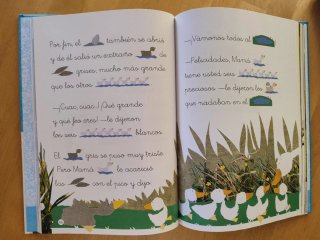 Por fin, el también se abrió
y de él salió un extraño de
grises, mucho más grande
que los otros
—¡Cuac, cuac...! ¡Qué grande
y qué feo eres! —le dijeron
los seis blancos.
El gris se puso muy triste.
Pero Mamá le acarició
las con el pico y dijo:
—¡Vámonos todos al
—Felicidades, Mamá
tiene usted seis
preciosos —le dijeron los
que nadaban en el